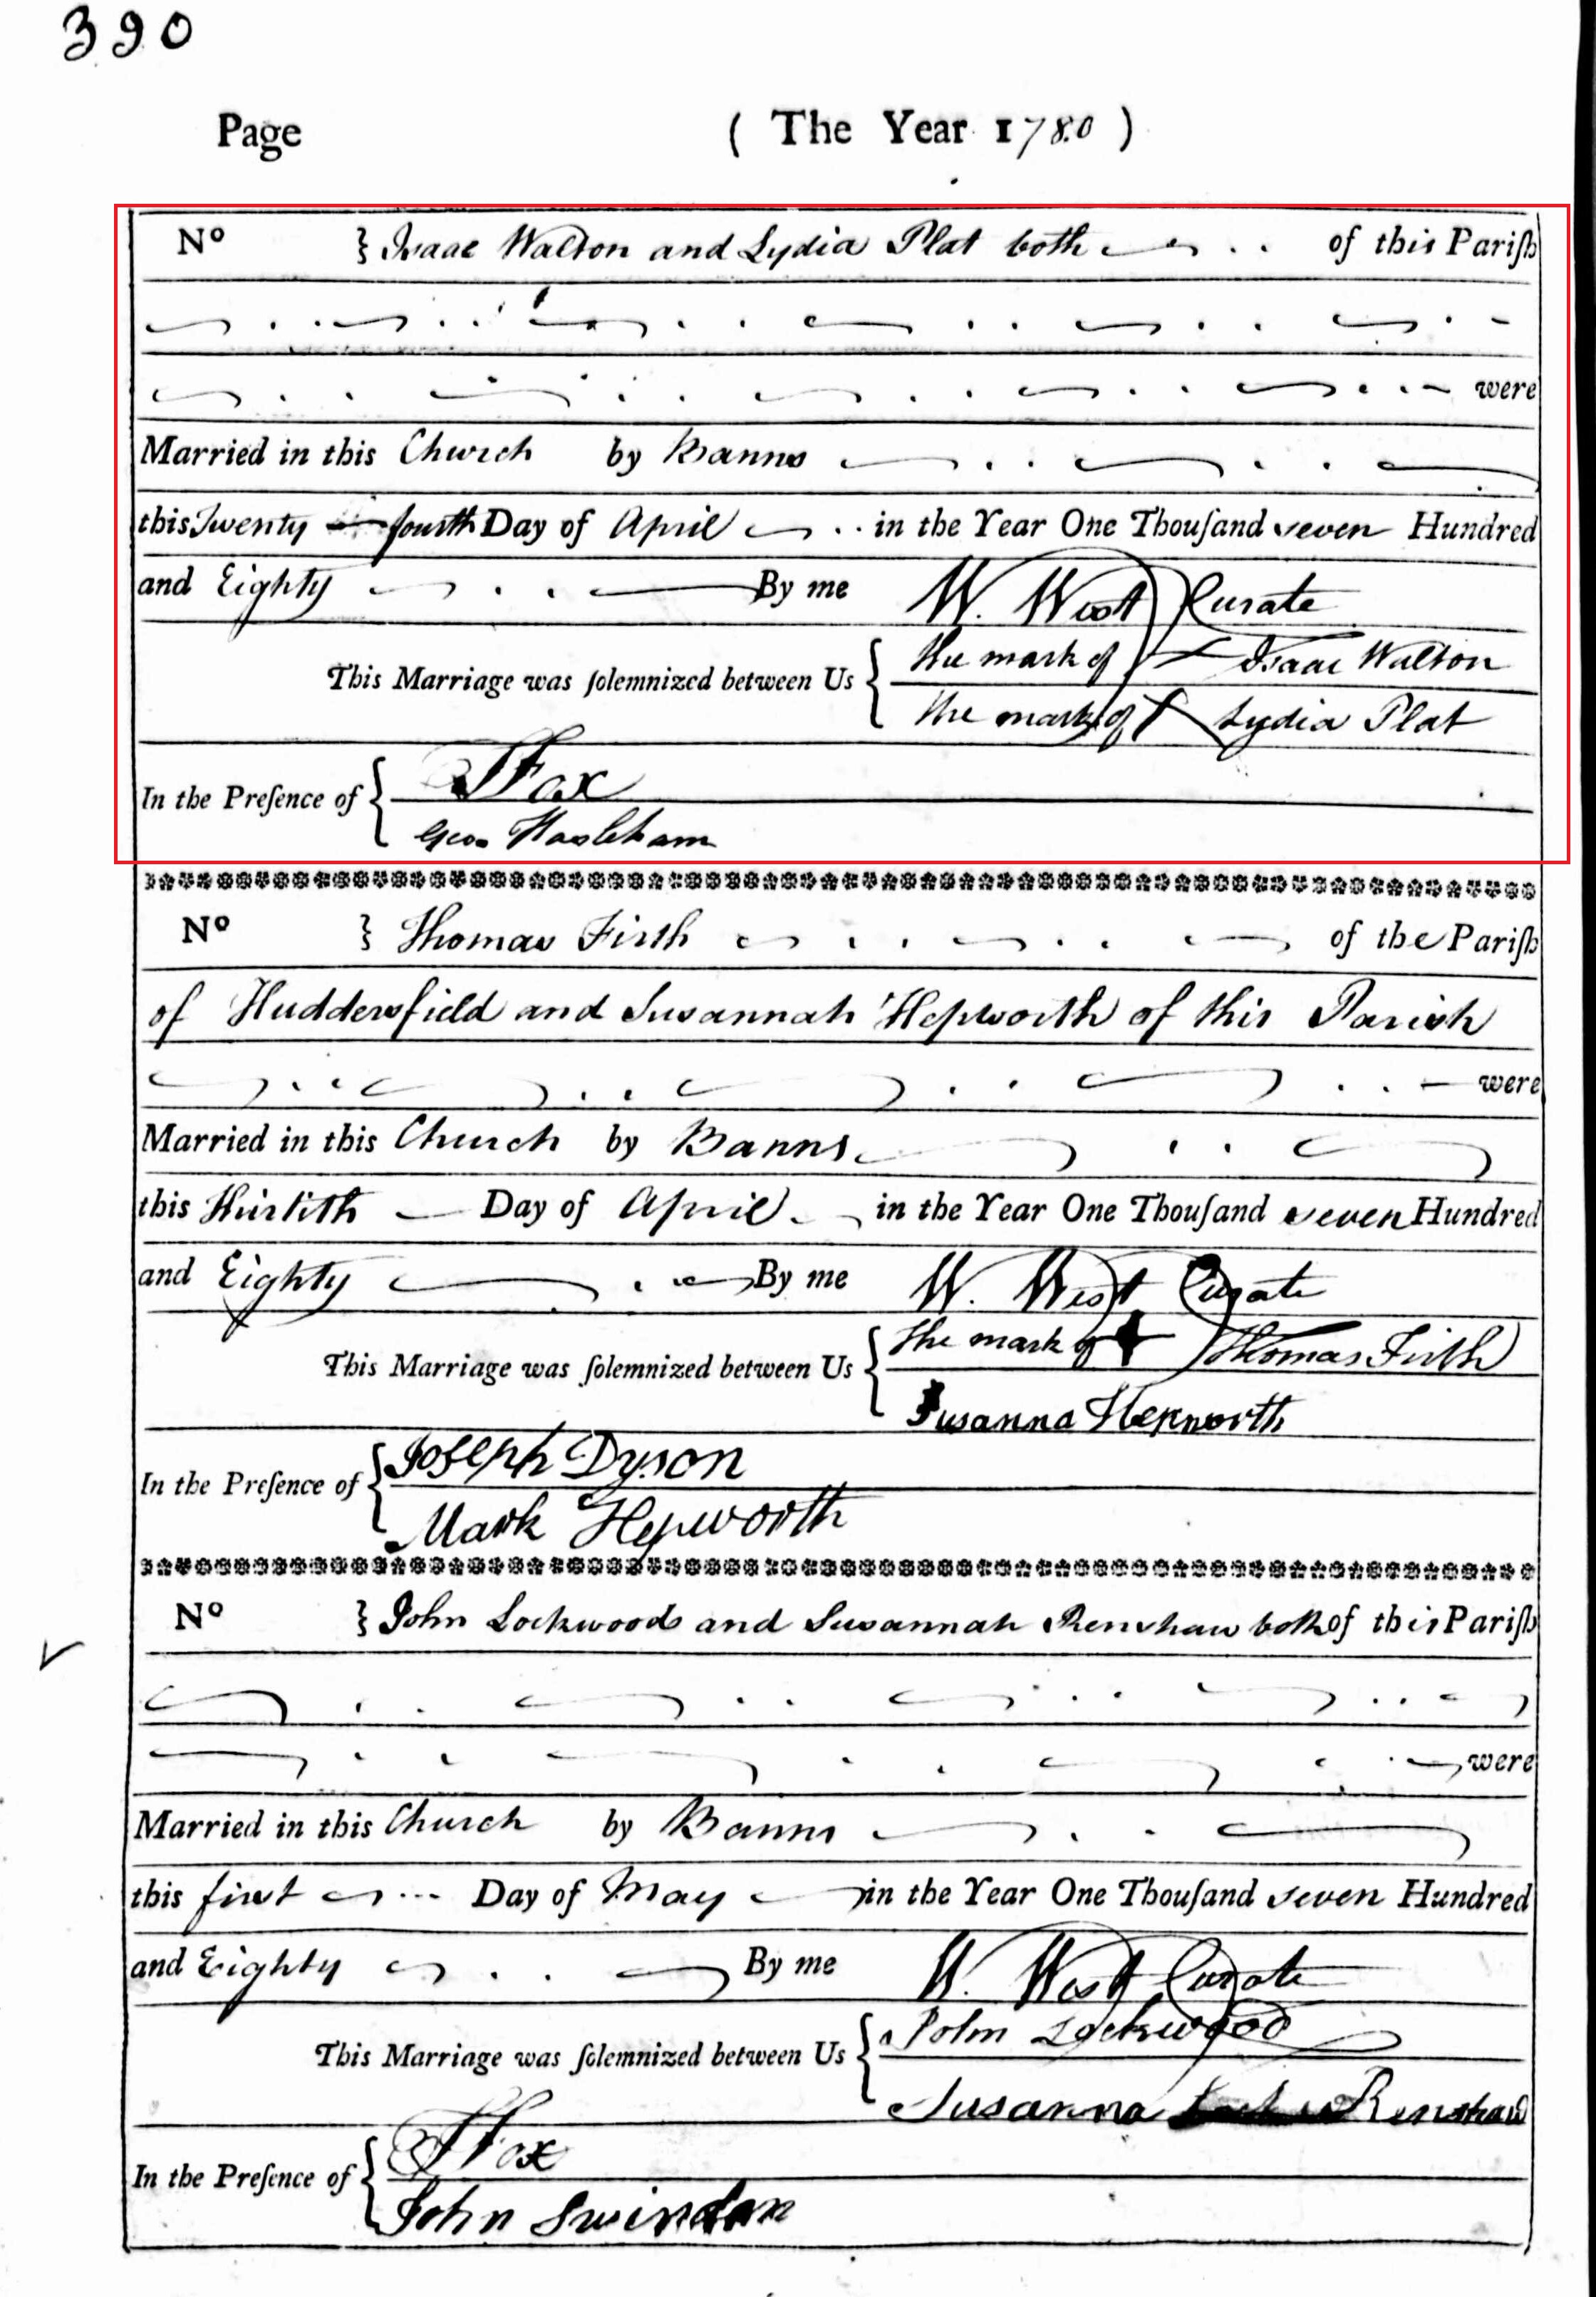 390
Page ( The Year 1780 )
No } Isaac Walton and Lydia Plat both of this Pariſh
were
Married in this Church by Banns
this Twenty fourth Day of April in the Year One Thouſand seven Hundred
and Eighty By me W. West Curate
This Marriage was ſolemnized between Us { the mark of Isaac Walton
the mark of Lydia Plat
In the Preſence of { Fox
Geo. Hasleham
No } Thomas Firth of the Pariſh
of Huddersfield and Susannah Hepworth of this Parish
were
Married in this Church by Banns
this Thirtith Day of April in the Year One Thouſand seven Hundred
and Eighty By me W. West Curate
This Marriage was ſolemnized between Us { The mark of Thomas Firth
Susanna Hepworth
In the Preſence of { Joseph Dyson
Mark Hepworth
No } John Lockwood and Susannah Renshaw both of this Pariſh
were
Married in this Church by Banns
this first Day of May in the Year One Thouſand seven Hundred
and Eighty By me W. West Curate
This Marriage was ſolemnized between Us { John Lockwood
Susanna Renshaw
In the Preſence of { Fox
John Swindan